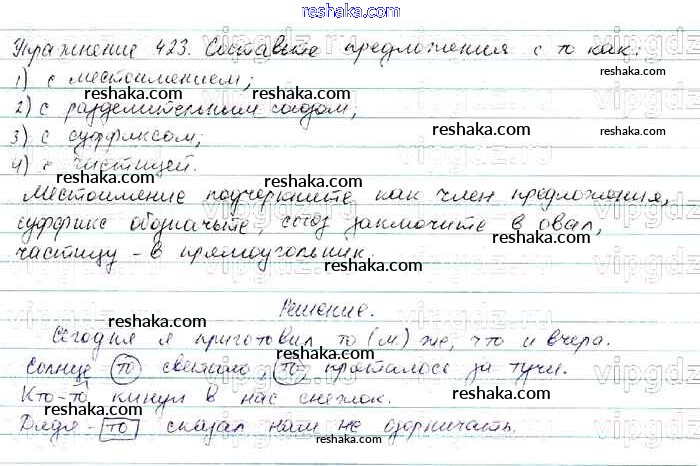 reshaka.com
Упражнение 423. Составьте предложения с то как:
1) с местоимением;
2) с разделительным союзом;
3) с суффиксом;
4) с частицей.
Местоимение подчеркните как член предложения,
суффикс обозначьте, союз заключите в овал,
частицу - в прямоугольник.
Решение.
Сегодня я приготовил то (м) же, что и вчера.
Солнце то светило, то пряталось за тучи.
Кто-то кинул в нас снежок.
Дядя-то сказал нам не озорничать.
reshaka.com
reshaka.com
reshaka.com
reshaka.com
reshaka.com
reshaka.com
reshaka.com
reshaka.com
reshaka.com
reshaka.com
reshaka.com
reshaka.com
reshaka.com
vipgdz.ru